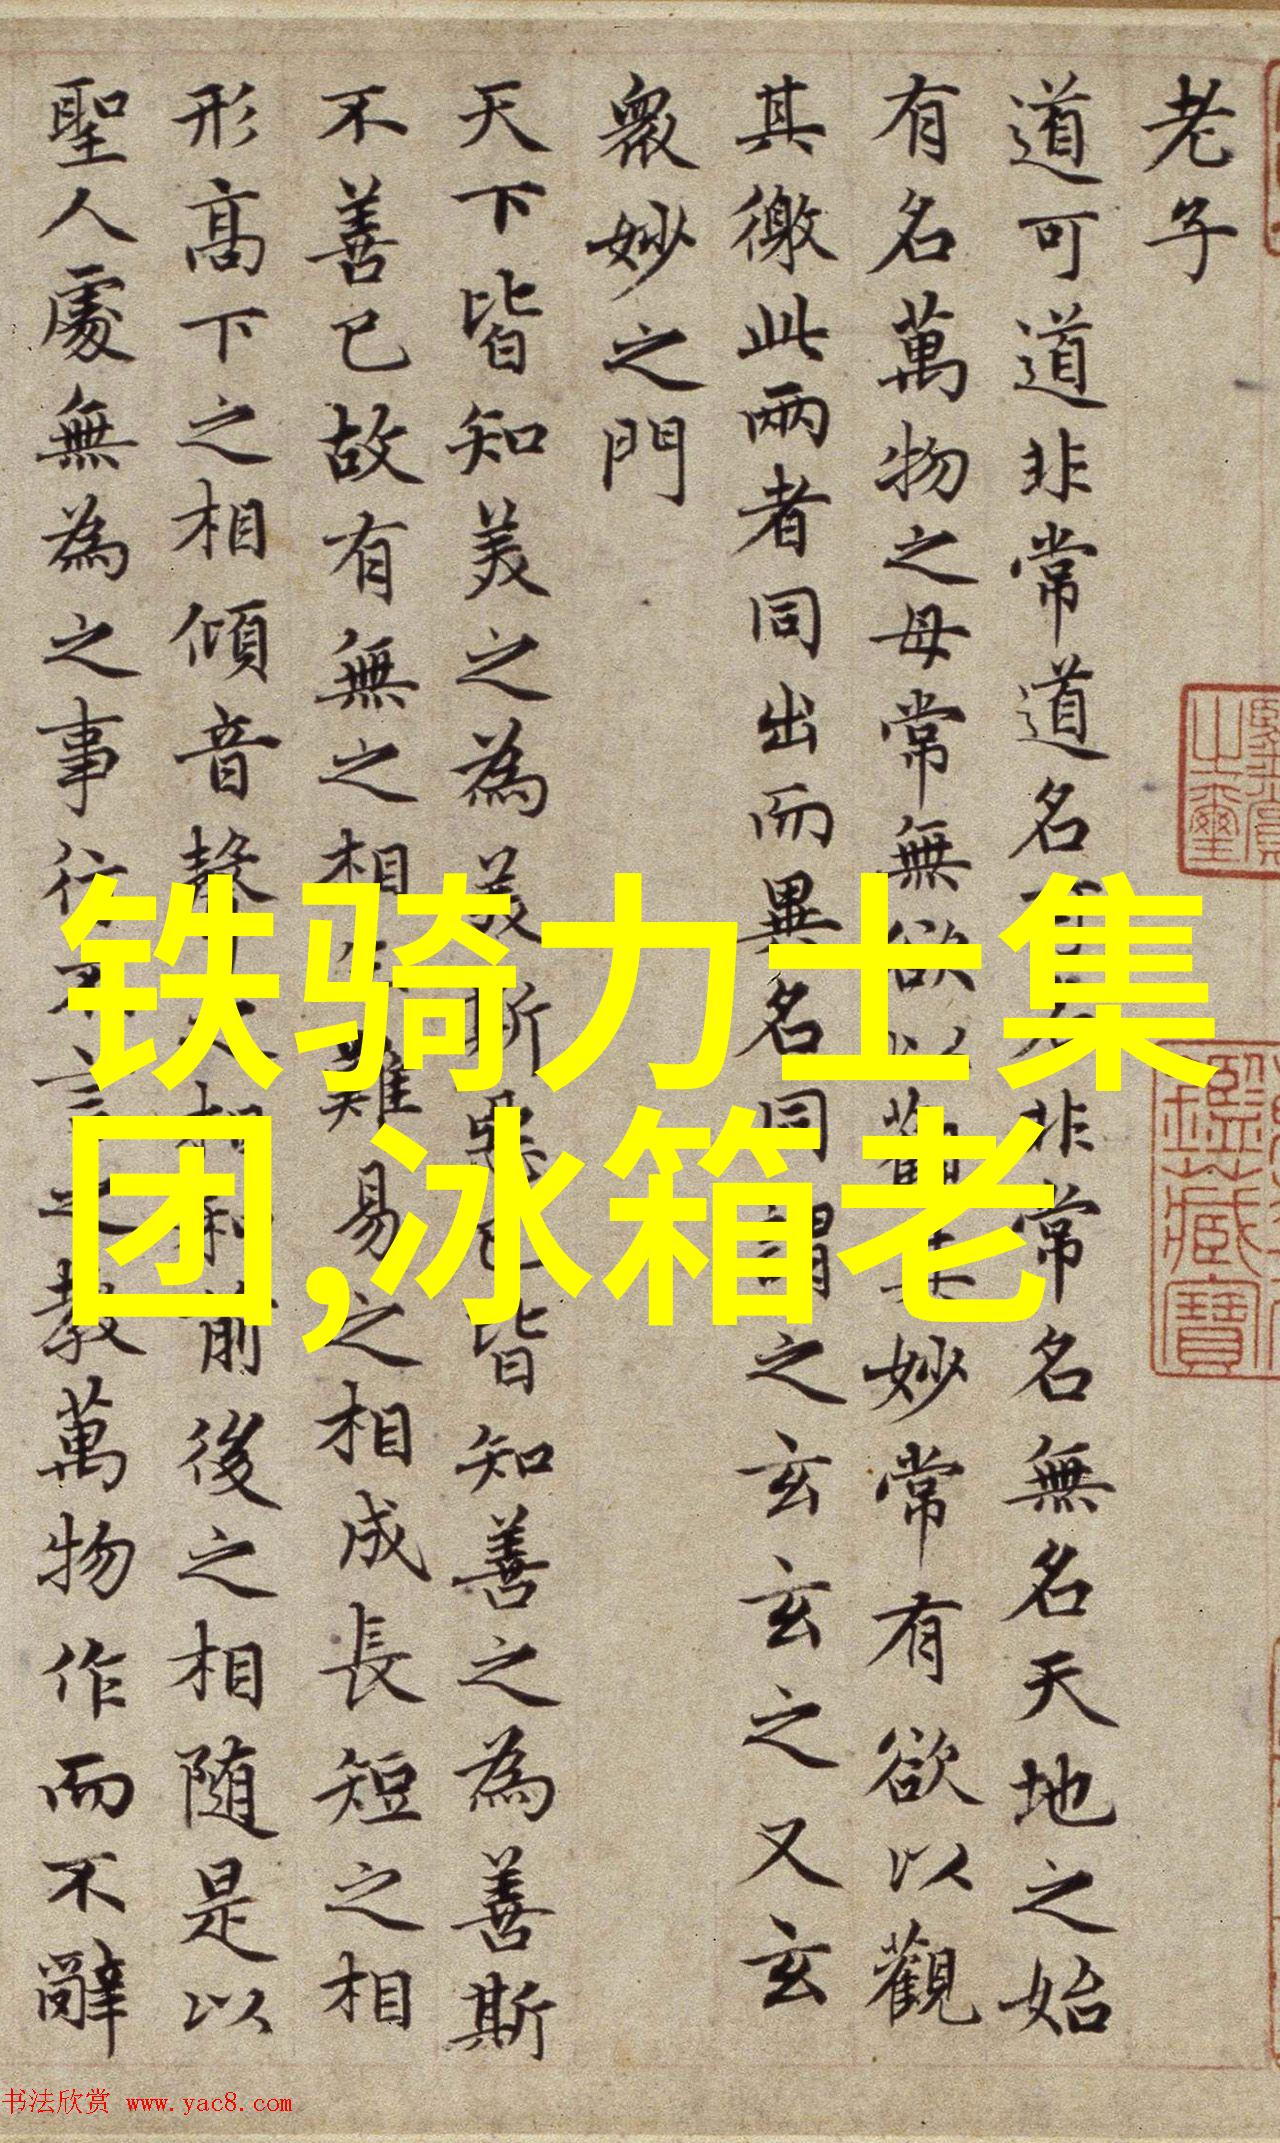 老子
道可道非常道名可名非常名無名天地之始
有名萬物之母常無欲以觀其妙常有欲以觀
其徼此兩者同出而異名同謂之玄玄之又玄
眾妙之門
天下皆知美之為美斯惡已皆知善之為善斯
不善已故有無之相生難易之相成長短之相
形高下之相傾音聲之相和前後之相随是以
聖人處無為之事行不言之教萬物作而不辭
铁骑力士集
团,冰箱老
鑑藏寶
书法欣赏 www.yac8.com